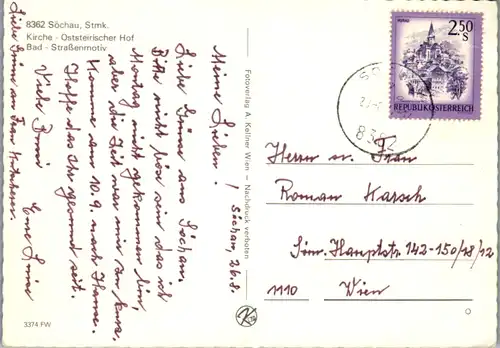 8362 Söchau, Stmk.
Kirche - Oststeirischer Hof
Bad - Straßenmotiv
Söchau, 26.8.
Meine Lieben!
Liebe Grüße aus Söchau.
Bitte nicht bös sein das ich
Montag nicht gekommen bin,
aber die Zeit war mir zu kurz.
Komme am 10.9. nach Hause.
Hoffe das Ihr gesund seit.
Viele Bussi
Eure
Liebe Grüße an Frau
Fotoverlag A. Kellner Wien — Nachdruck verboten
2.50
S
REPUBLIK ÖSTERREICH
8362
Herrn u. Frau
Roman Karsch
Sim. Hauptstr. 142-150/18/12
1110 Wien
3374 FW
K